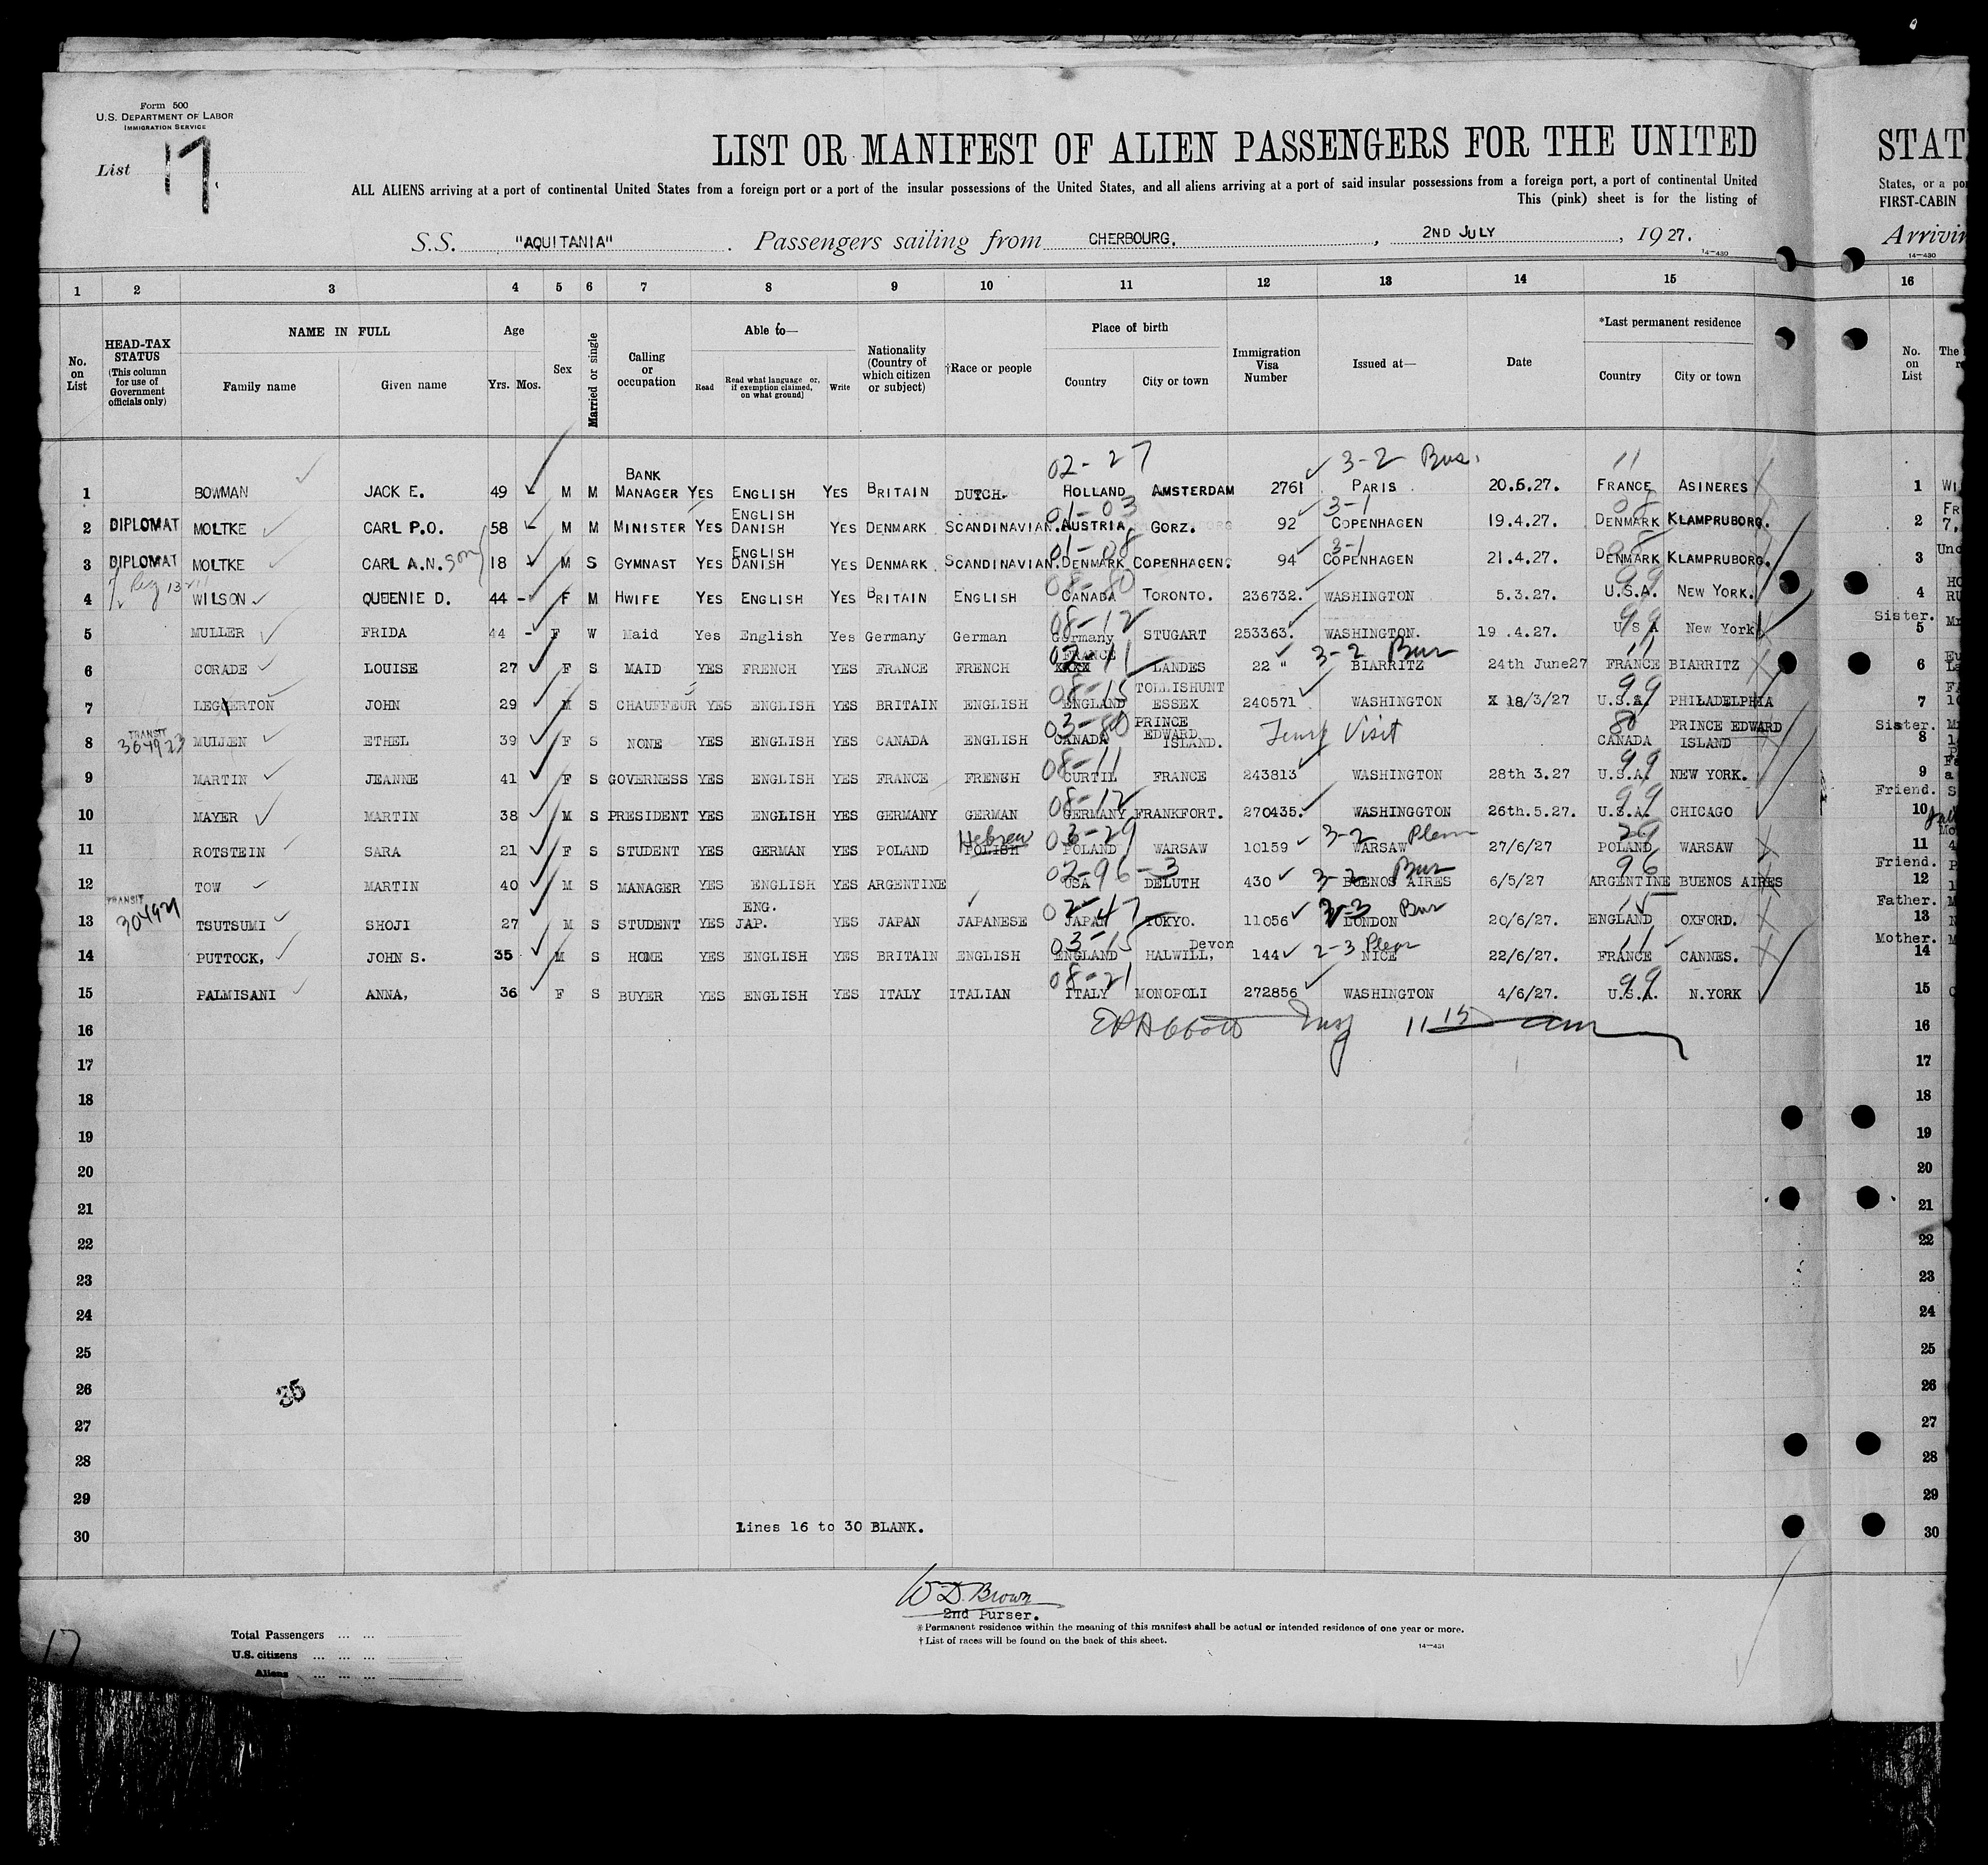 Form 500
U.S. DEPARTMENT OF LABOR
IMMIGRATION SERVICE
List 17.
LIST OR MANIFEST OF ALIEN PASSENGERS FOR THE UNITED
STAT
ALL ALIENS arriving at a port of continental United States from a foreign port or a port of the insular possessions of the United States, and all aliens arriving at a port of said insular possessions from a foreign port, a port of continental United
States, or a po
This (pink) sheet is for the listing of
FIRST-CABIN
S.S. "AQUITANIA". Passengers sailing from CHERBOURG, 2ND JULY, 1927.
Arrivin
14-430 14-430
1 2 3 4 5 6 7 8 9 10 11 12 13 14 15 16
No. on List HEAD-TAX STATUS (This column for use of Government officials only) NAME IN FULL Family name Given name Age Yrs. Mos. Sex Married or single Calling or occupation Able to— Read Read what language or, if exemption claimed, on what ground] Write Nationality (Country of which citizen or subject) †Race or people Place of birth Country City or town Immigration Visa Number Issued at— Date *Last permanent residence Country City or town No. on List The
02-27 3-2 Bus. 11
1 BOWMAN JACK E. 49 M M BANK MANAGER YES ENGLISH YES BRITAIN DUTCH. HOLLAND AMSTERDAM 2761 PARIS 20.6.27. FRANCE ASINERES 1 WI
01-03 3-1 08
2 DIPLOMAT MOLTKE CARL P.O. 58 M M MINISTER YES ENGLISH DANISH YES DENMARK SCANDINAVIAN. AUSTRIA GORZ. 92 COPENHAGEN 19.4.27. DENMARK KLAMPRUBORG. 2 FR 7,
01-08 3-1
3 DIPLOMAT MOLTKE CARL A.N. Son 18 M S GYMNAST YES ENGLISH DANISH YES DENMARK SCANDINAVIAN. DENMARK COPENHAGEN. 94 COPENHAGEN 21.4.27. DENMARK KLAMPRUBORG. 3 Unc
08-80 99
4 WILSON QUEENIE D. 44 - F M HWIFE YES ENGLISH YES BRITAIN ENGLISH CANADA TORONTO. 236732. WASHINGTON 5.3.27. U.S.A. NEW YORK. 4 HO RU
08-12 99
5 MULLER FRIDA 44 - F W Maid Yes English Yes Germany German Germany STUGART 253363. WASHINGTON. 19 .4.27. U S A New York Sister. 5 Mr
02-11 3-2 Bus 11
6 CORADE LOUISE 27 F S MAID YES FRENCH YES FRANCE FRENCH FRANCE XXXX LANDES 22 " BIARRITZ 24th June27 FRANCE BIARRITZ 6
08-15 99
7 LEGGERTON JOHN 29 M S CHAUFFEUR YES ENGLISH YES BRITAIN ENGLISH ENGLAND TOLLISHUNT ESSEX 240571 WASHINGTON X 18/3/27 U.S.A. PHILADELPHIA 7
03-80 80
8 TRANSIT 364923 MULLEN ETHEL 39 F S NONE YES ENGLISH YES CANADA ENGLISH CANADA PRINCE EDWARD ISLAND. Temp Visit CANADA PRINCE EDWARD ISLAND Sister. 8
08-11 99
9 MARTIN JEANNE 41 F S GOVERNESS YES ENGLISH YES FRANCE FRENCH CURTIL FRANCE 243813 WASHINGTON 28th 3.27 U.S.A. NEW YORK. 9
08-12 99
10 MAYER MARTIN 38 M S PRESIDENT YES ENGLISH YES GERMANY GERMAN GERMANY FRANKFORT. 270435. WASHINGGTON 26th.5.27. U.S.A. CHICAGO Friend. 10
Hebrew 03-29 3-2 Pleas 29
11 ROTSTEIN SARA 21 F S STUDENT YES GERMAN YES POLAND POLISH POLAND WARSAW 10159 WARSAW 27/6/27 POLAND WARSAW 11
02-96-3 3-2 Bus 96
12 TOW MARTIN 40 M S MANAGER YES ENGLISH YES ARGENTINE USA DELUTH 430 BUENOS AIRES 6/5/27 ARGENTINE BUENOS AIRES Friend. 12
02-47 3-3 Bus 15
13 TRANSIT 304921 TSUTSUMI SHOJI 27 M S STUDENT YES ENG. JAP. YES JAPAN JAPANESE JAPAN TOKYO. 11056 LONDON 20/6/27. ENGLAND OXFORD. Father. 13
03-15 2-3 Pleas 11
14 PUTTOCK, JOHN S. 35 M S HOME YES ENGLISH YES BRITAIN ENGLISH ENGLAND HALWILL, Devon 144 NICE 22/6/27. FRANCE CANNES. Mother. 14
08-21 99
15 PALMISANI ANNA, 36 F S BUYER YES ENGLISH YES ITALY ITALIAN ITALY MONOPOLI 272856 WASHINGTON 4/6/27. U.S.A. N.YORK 15
16 EDAbbott Insp 11 15 am 16
17 17
18 18
19 19
20 20
21 21
22 22
23 23
24 24
25 25
26 35 26
27 27
28 28
29 29
30 Lines 16 to 30 BLANK. 30
W D. Brown
2nd Purser.
*Permanent residence within the meaning of this manifest shall be actual or intended residence of one year or more.
†List of races will be found on the back of this sheet.
14-431
Total Passengers ... ...
U.S. citizens ... ... ...
Aliens ... ... ...
17